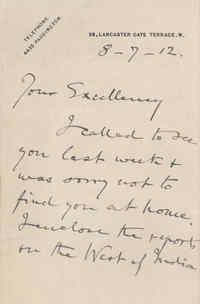 TELEPHONE
4435 PADDINGTON.
38, LANCASTER GATE TERRACE, W.
8-7-12.
Your Excellency
I called to see
you last week &
was sorry not to
find you at home.
I enclose the report
on the West of India